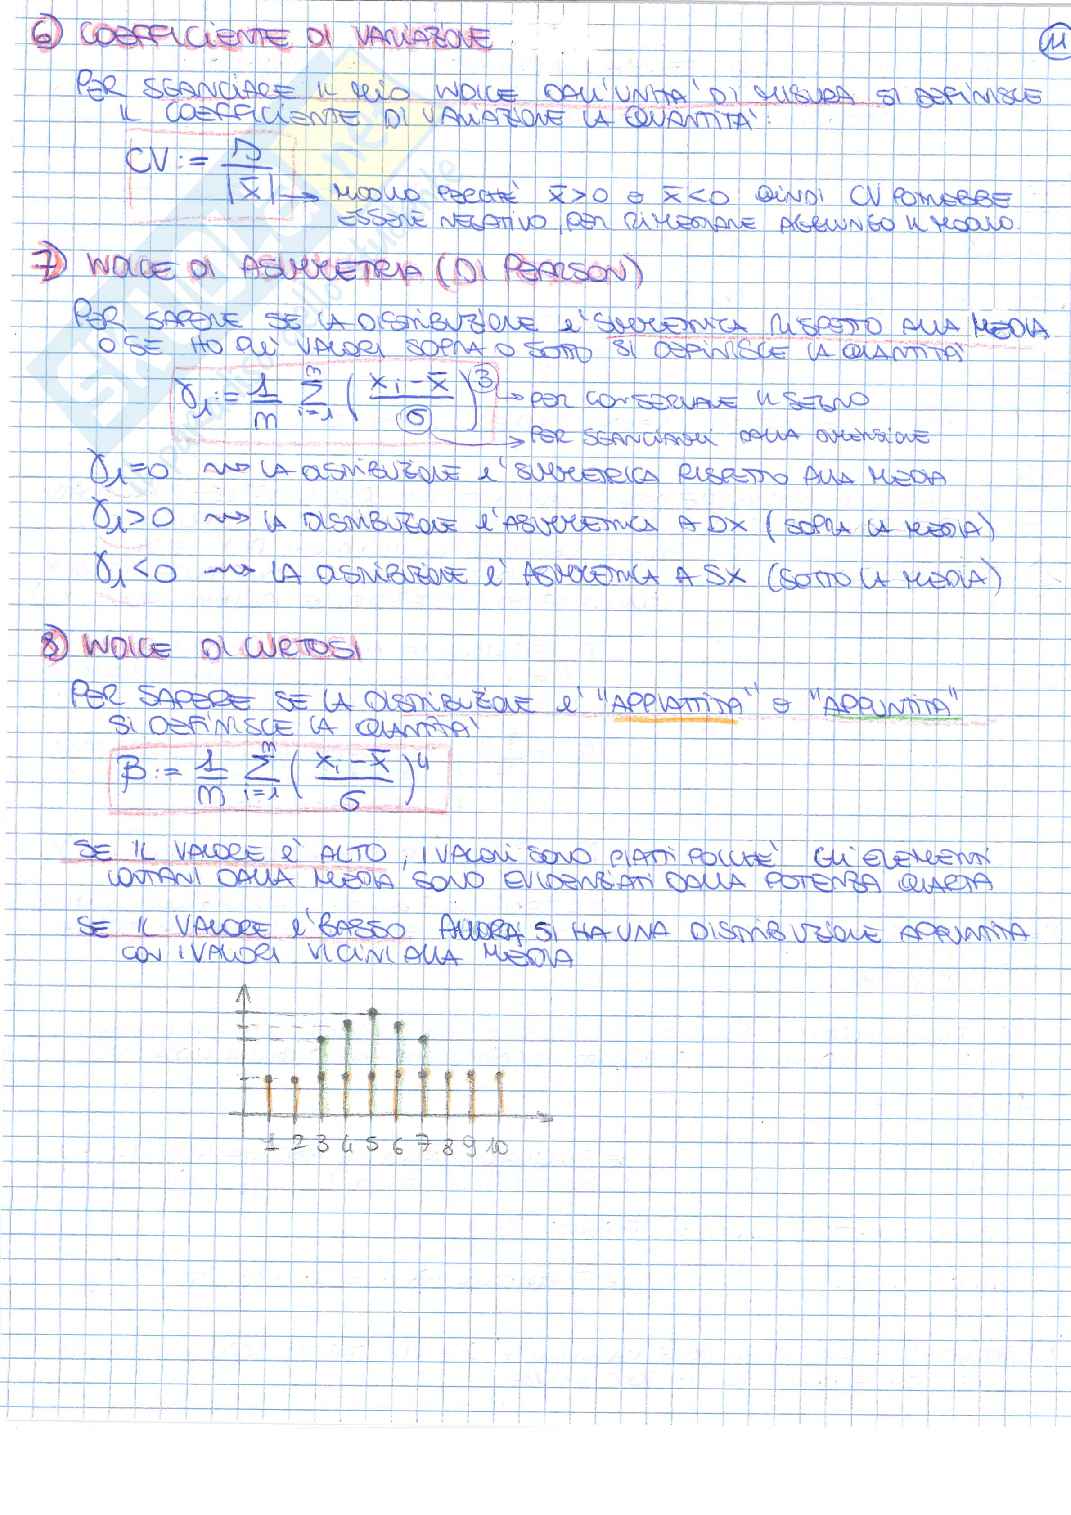 6) COEFFICIENTE DI VARIAZIONE
11
PER SGANCIARE IL MIO INDICE DALL'UNITA' DI MISURA SI DEFINISCE
IL COEFFICIENTE DI VARIAZIONE LA QUANTITA':
CV := s / |x̄| → MODULO PERCHÉ x̄>0 o x̄<0 QUINDI CV POTREBBE
ESSERE NEGATIVO, PER RIMEDIARE AGGIUNGO IL MODULO.
7) INDICE DI ASIMMETRIA (DI PEARSON)
PER SAPERE SE LA DISTRIBUZIONE e' SIMMETRICA RISPETTO ALLA MEDIA
O SE HO PIU' VALORI SOPRA O SOTTO SI DEFINISCE LA QUANTITA'
γ₁ := 1/n Σ_{i=1}^{n} ((xᵢ - x̄)/σ)³ → PER CONSERVARE IL SEGNO
→ PER SGANCIARSI DALLA DIMENSIONE
γ₁=0 ⇝ LA DISTRIBUZIONE e' SIMMETRICA RISPETTO ALLA MEDIA
γ₁>0 ⇝ LA DISTRIBUZIONE e' ASIMMETRICA A DX (SOPRA LA MEDIA)
γ₁<0 ⇝ LA DISTRIBUZIONE e' ASIMMETRICA A SX (SOTTO LA MEDIA)
8) INDICE DI CURTOSI
PER SAPERE SE LA DISTRIBUZIONE e' "APPIATTITA" o "APPUNTITA"
SI DEFINISCE LA QUANTITA'
β := 1/n Σ_{i=1}^{n} ((xᵢ - x̄)/σ)⁴
SE IL VALORE e' ALTO, I VALORI SONO PIATTI POICHÉ GLI ELEMENTI
LONTANI DALLA MEDIA SONO EVIDENZIATI DALLA POTENZA QUARTA
SE IL VALORE e' BASSO ALLORA SI HA UNA DISTRIBUZIONE APPUNTITA
CON I VALORI VICINI ALLA MEDIA
1 2 3 4 5 6 7 8 9 10